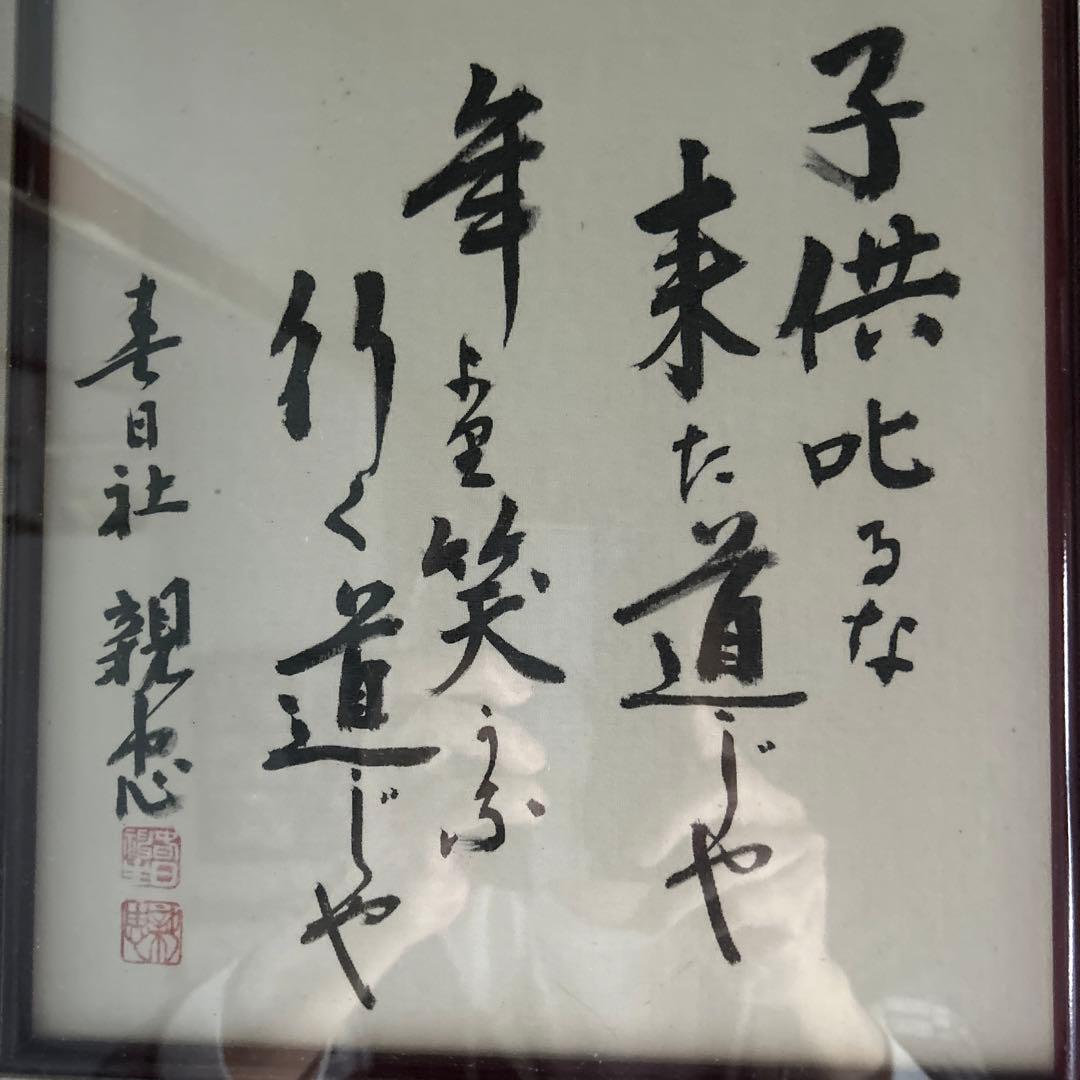 子供叱るな
来た道じや
年よ里笑うな
行く道じや
春日社 親忠